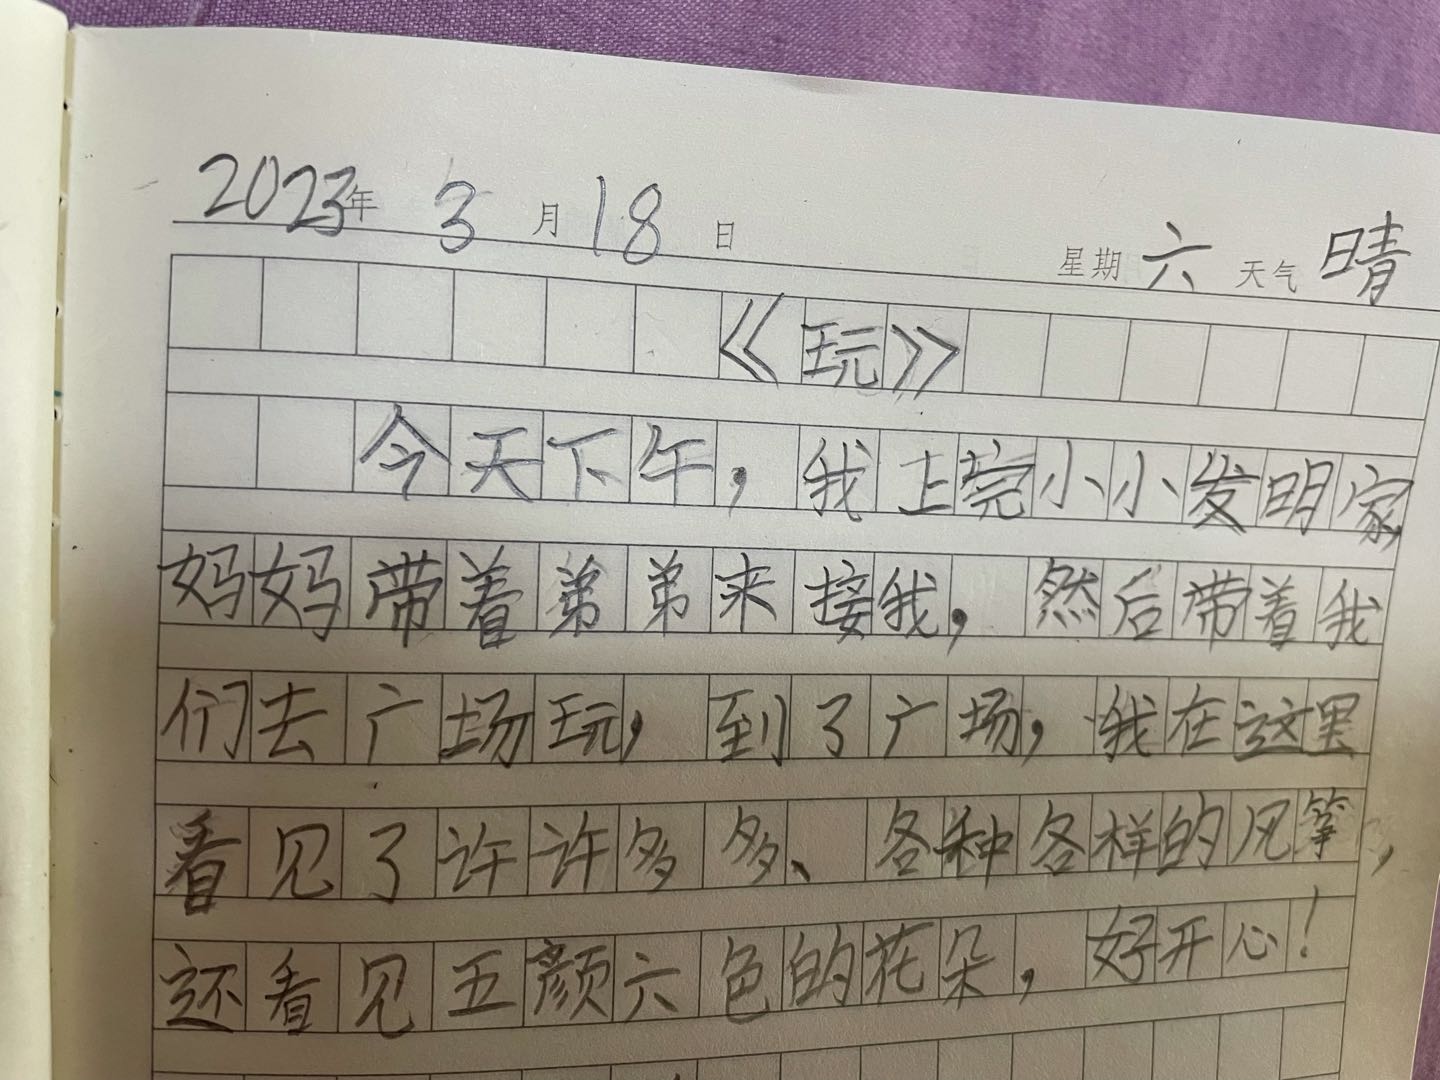 2023年 3月18日 星期六 天气晴
《玩》
今天下午，我上莞小小发明家，
妈妈带着弟弟来接我，然后带着我
们去广场玩，到了广场，我在这里
看见了许许多多、各种各样的风筝，
还看见五颜六色的花朵，好开心！